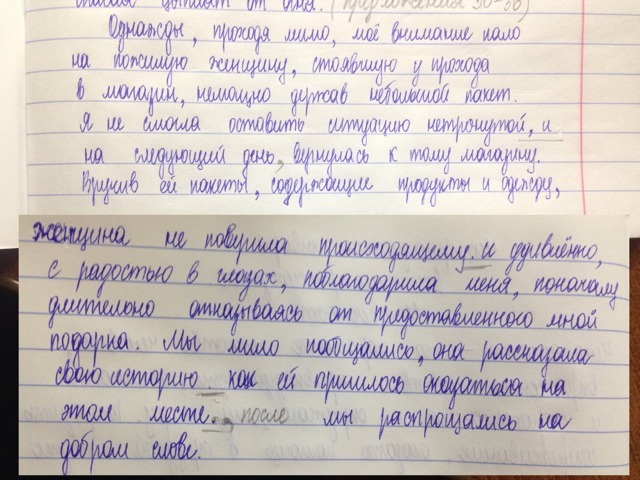 цыплят от огня. (предложения 30-36)
Однажды, проходя мимо, моё внимание пало
на пожилую женщину, стоявшую у прохода
в магазин, немощно держав небольшой пакет.
Я не смогла оставить ситуацию нетронутой, и
на следующий день, вернулась к тому магазину.
Вручив ей пакеты, содержащие продукты и одежду,
женщина не поверила происходящему. и удивлённо,
с радостью в глазах, поблагодарила меня, поначалу
длительно отказываясь от предоставленного мной
подарка. Мы мило пообщались, она рассказала
свою историю как ей пришлось оказаться на
этом месте. после мы распрощались на
добром слове.